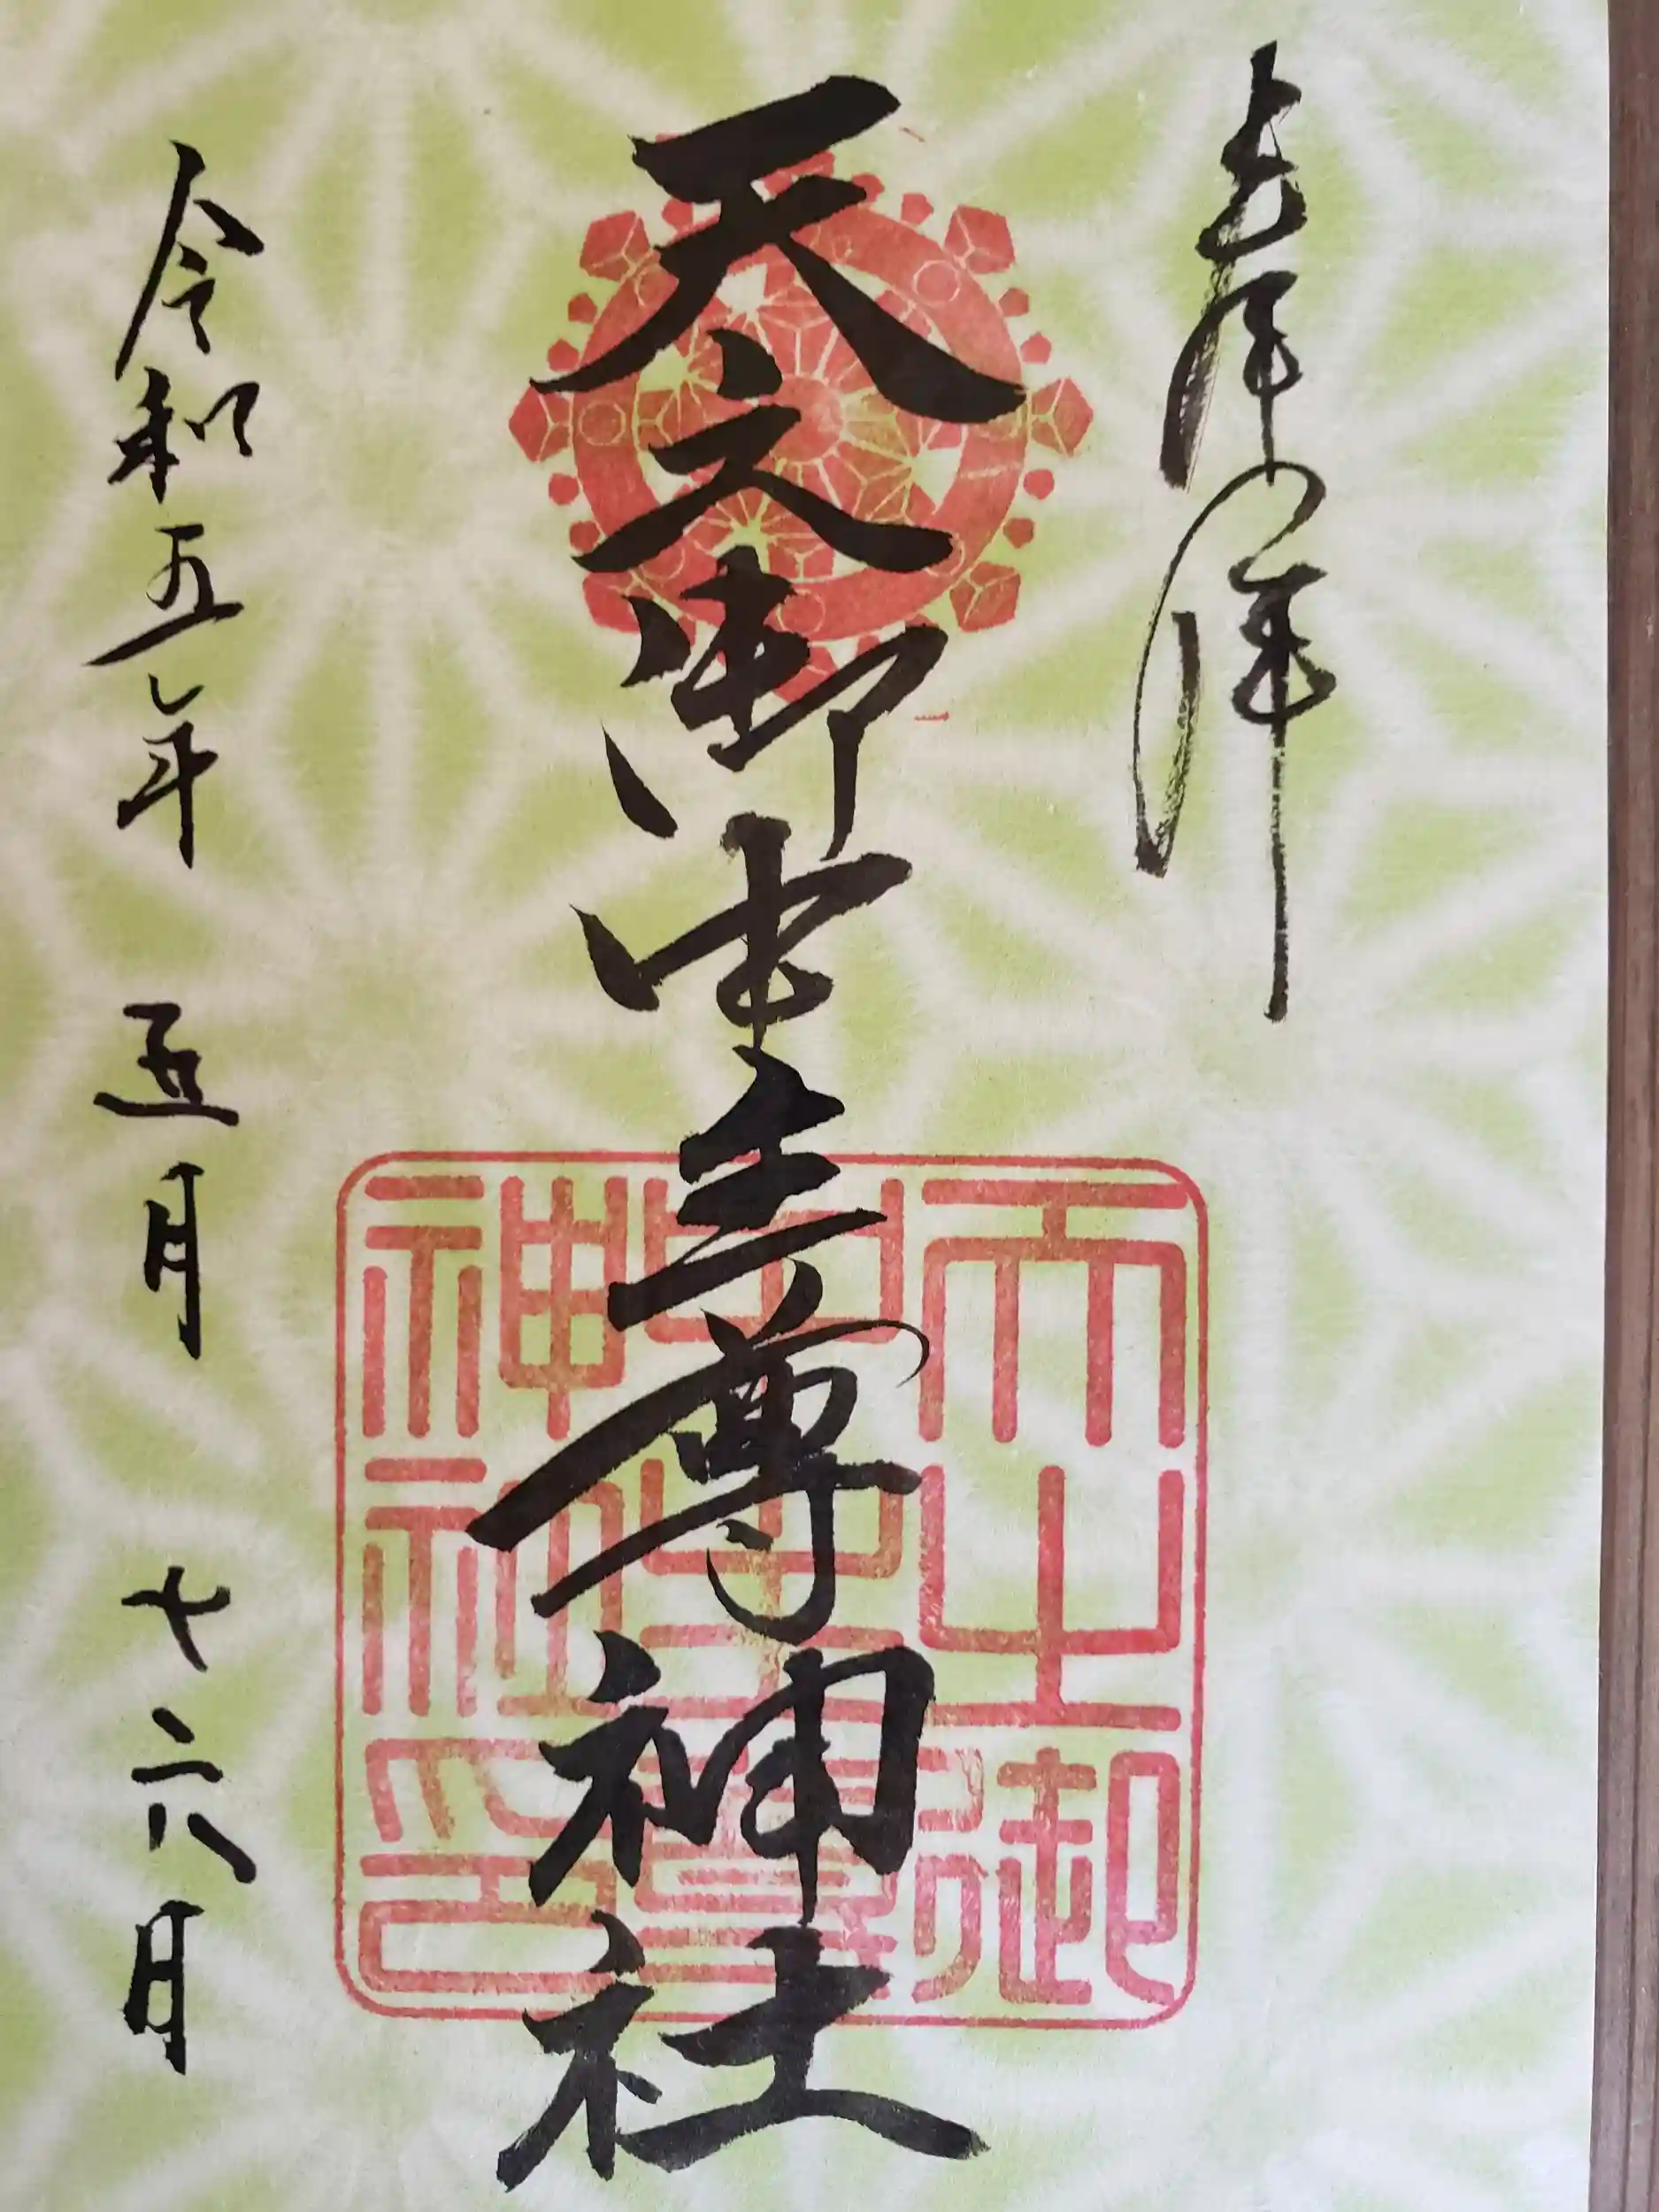 奉拝
天之御中主尊神社
令和五年 五月 十六日
天之御
中主尊
神社印